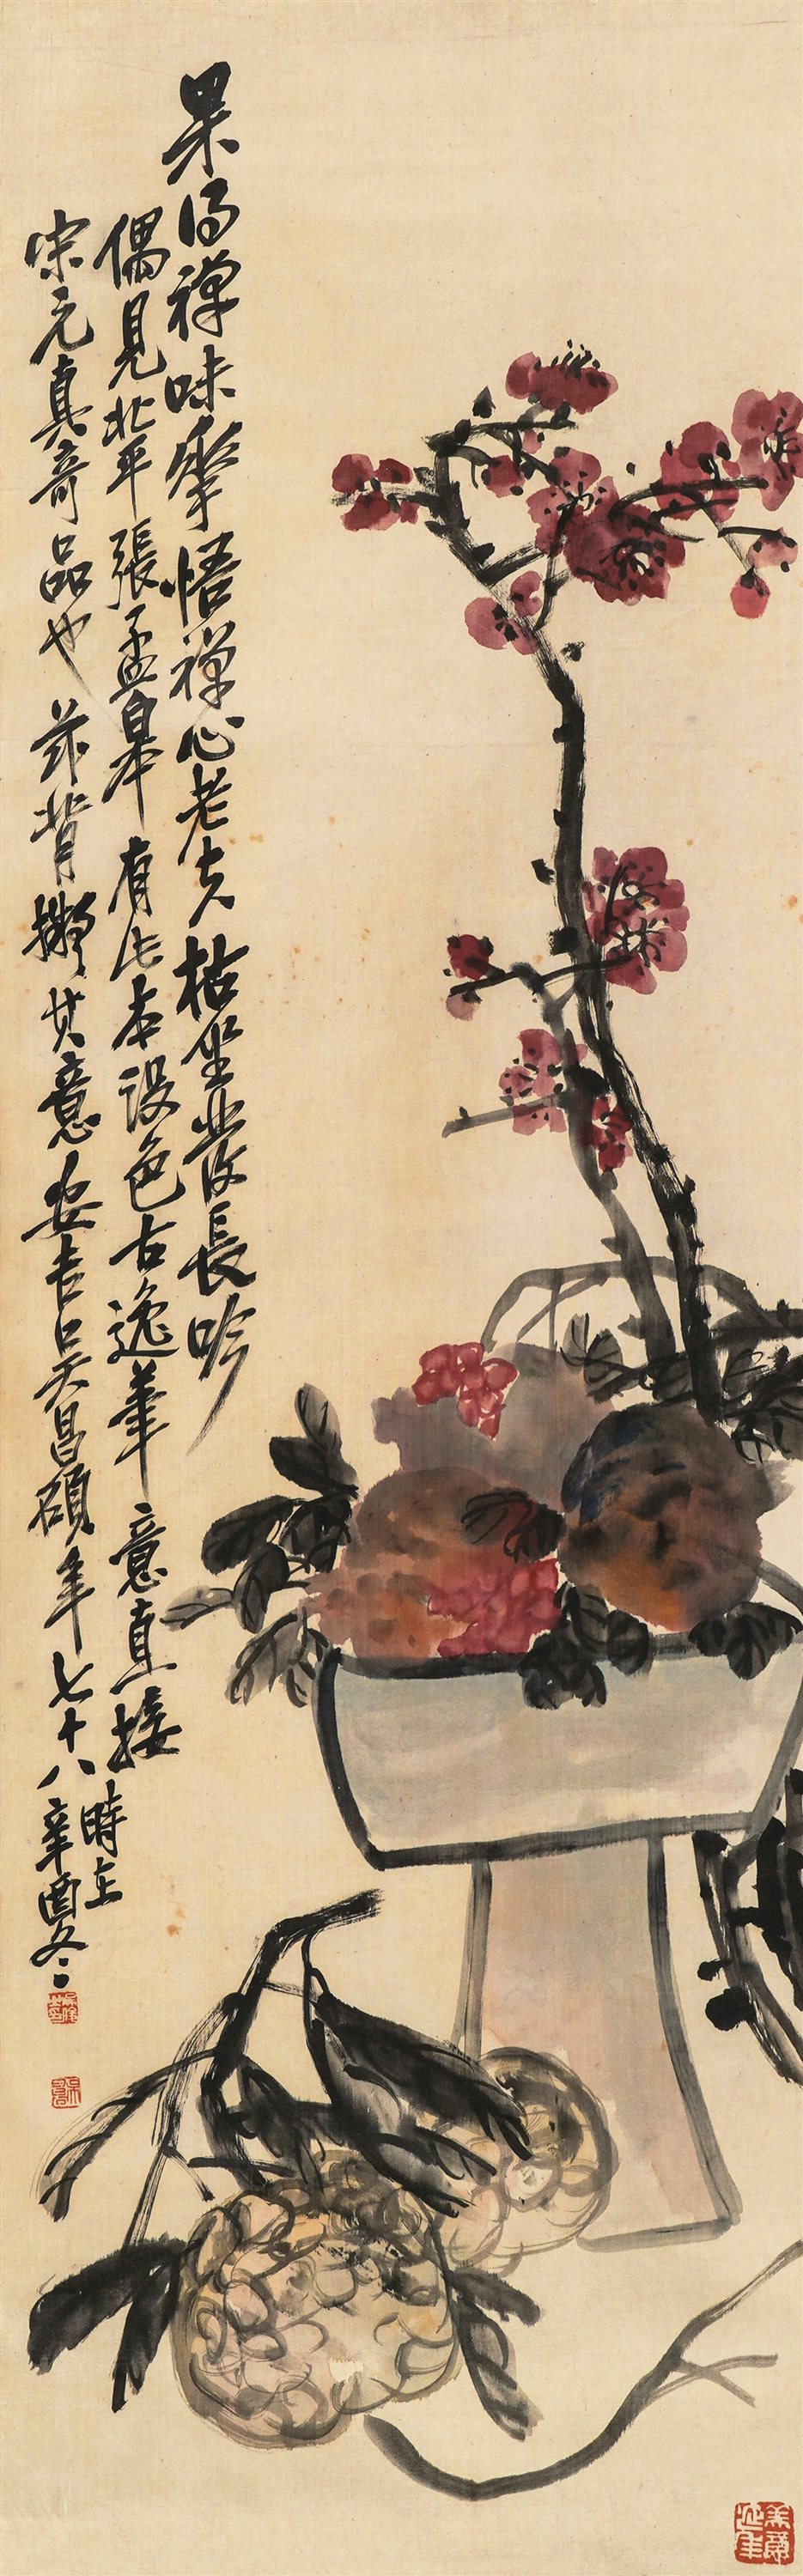 果得禪味悟禪心老夫枯坐發長吟
偶見北平張孟皋有此本設色古逸筆意直接
宋元真奇品也茲背擬其意安吉吳昌碩年七十八
時在
辛酉冬
美意延年